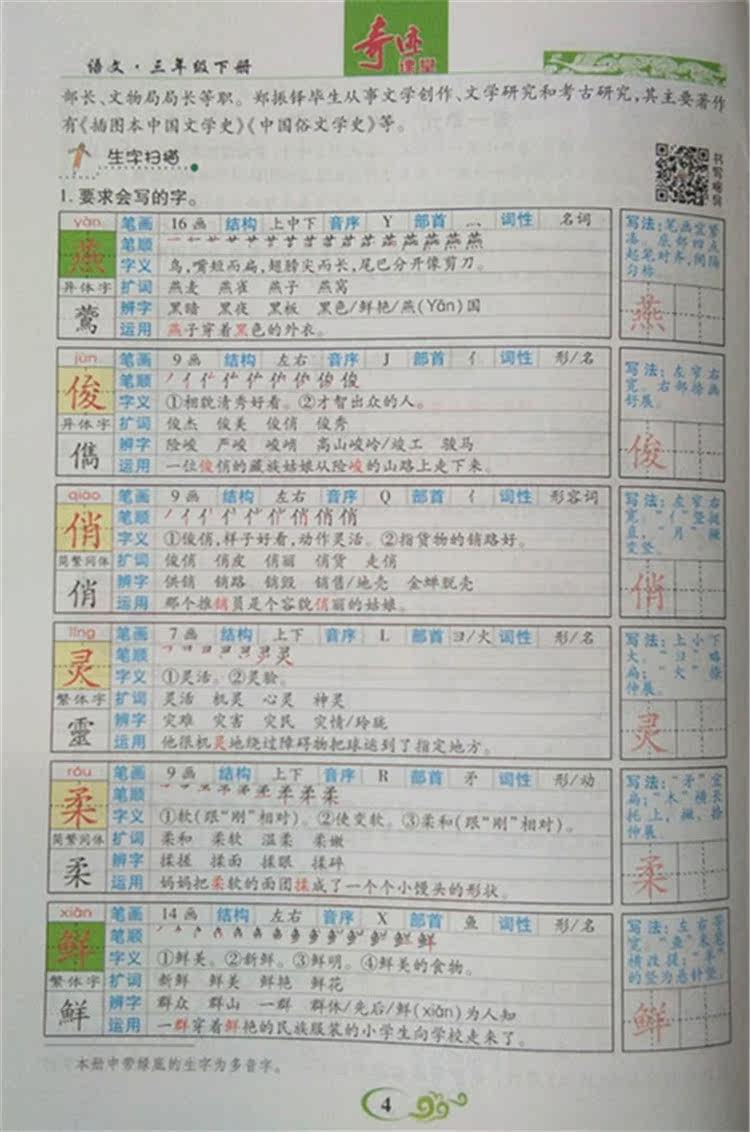 语文·三年级下册
奇迹
课堂
部长、文物局局长等职。郑振铎毕生从事文学创作、文学研究和考古研究,其主要著作
有《插图本中国文学史》《中国俗文学史》等。
生字扫描
1.要求会写的字。
yàn 笔画 16画 结构 上中下 音序 Y 部首 灬 词性 名词
燕 笔顺
字义 鸟,嘴短而扁,翅膀尖而长,尾巴分开像剪刀。
异体字 扩词 燕麦 燕雀 燕子 燕窝
辨字 黑暗 黑夜 黑板 黑色/鲜艳/燕(Yān)国
运用 燕子穿着黑色的外衣。
写法:笔画宜紧
凑。底部四点
起笔对齐,间隔
匀称。
燕
jùn 笔画 9画 结构 左右 音序 J 部首 亻 词性 形/名
俊 笔顺
字义 ①相貌清秀好看。②才智出众的人。
异体字 扩词 俊杰 俊美 俊俏 俊秀
儁 辨字 险峻 严峻 峻峭 高山峻岭/竣工 骏马
运用 一位俊俏的藏族姑娘从险峻的山路上走下来。
写法:左窄右
宽。右部捺画
舒展。
俊
qiào 笔画 9画 结构 左右 音序 Q 部首 亻 词性 形容词
俏 笔顺
字义 ①俊俏,样子好看,动作灵活。②指货物的销路好。
简繁同体 扩词 俊俏 俏皮 俏丽 俏货 走俏
俏 辨字 供销 销路 销毁 销售/地壳 金蝉脱壳
运用 那个推销员是个容貌俏丽的姑娘。
写法:左窄右
宽。“亻”竖挺
直,“月”撇
变竖。
俏
líng 笔画 7画 结构 上下 音序 L 部首 彐/火 词性 形/名
灵 笔顺
字义 ①灵活。②灵验。
繁体字 扩词 灵活 机灵 心灵 神灵
靈 辨字 灾难 灾害 灾民 灾情/玲珑
运用 他很机灵地绕过障碍物把球运到了指定地方。
写法:上小下
大。“彐”略
扁;“火”捺
伸展。
灵
róu 笔画 9画 结构 上下 音序 R 部首 矛 词性 形/动
柔 笔顺
字义 ①软(跟“刚”相对)。②使变软。③柔和(跟“刚”相对)。
简繁同体 扩词 柔和 柔软 温柔 柔嫩
柔 辨字 揉搓 揉面 揉眼 揉碎
运用 妈妈把柔软的面团揉成了一个个小馒头的形状。
写法:“矛”宜
扁;“木”横长
托上,撇、捺
伸展。
柔
xiān 笔画 14画 结构 左右 音序 X 部首 鱼 词性 形/名
鲜 笔顺
字义 ①鲜美。②新鲜。③鲜明。④鲜美的食物。
繁体字 扩词 新鲜 鲜美 鲜艳 鲜花
鮮 辨字 群众 群山 一群 群体/先后/鲜(xiǎn)为人知
运用 一群穿着鲜艳的民族服装的小学生向学校走来了。
写法:左右等
宽。“鱼”末笔
横改提;“羊”
的竖为悬针竖。
鲜
本册中带绿底的生字为多音字。
4